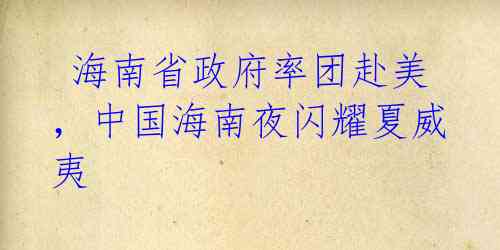 海南省政府率团赴美
，中国海南夜闪耀夏威
夷